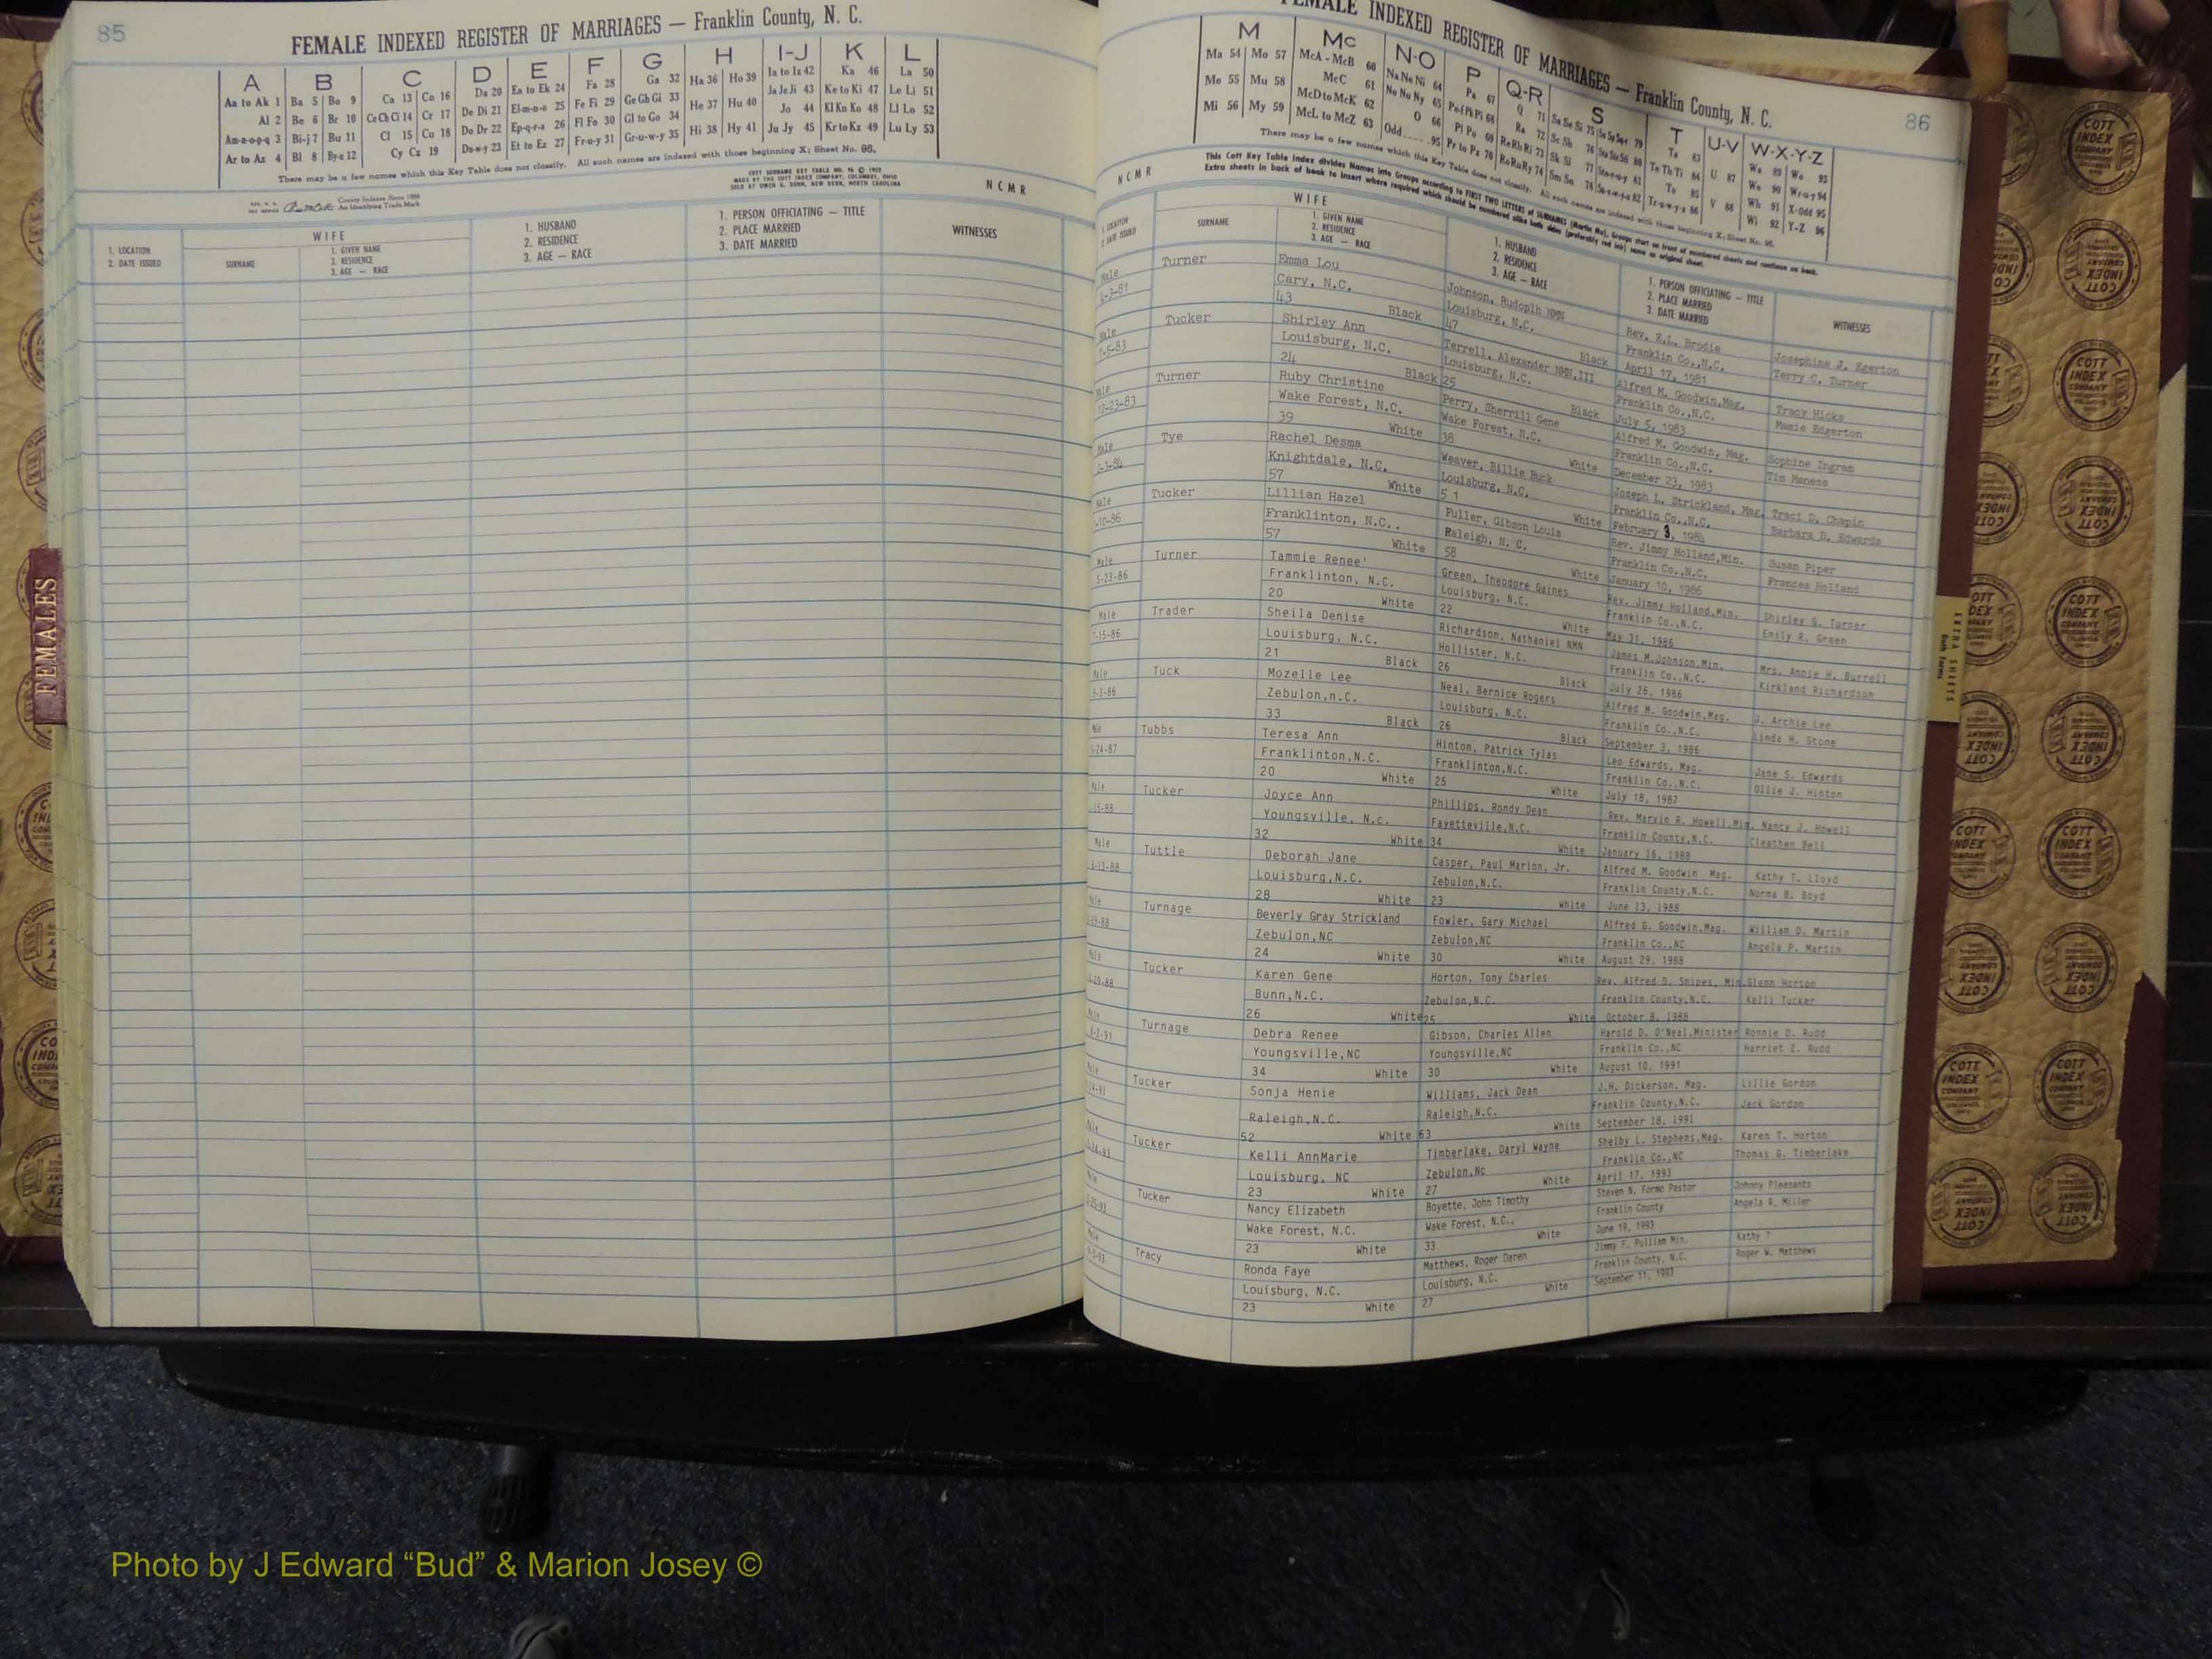 85
FEMALE INDEXED REGISTER OF MARRIAGES — Franklin County, N. C.
A B C D E F G H I-J K L
Aa to Ak 1 Ba 5 Bo 9 Ca 13 Co 16 Da 20 Ea to Ek 24 Fa 28 Ga 32 Ha 36 Ho 39 Ia to Iz 42 Ka 46 La 50
Al 2 Be 6 Br 10 Ce Ch Ci 14 Cr 17 De Di 21 El-m-n-o 25 Fe Fi 29 Ge Gh Gi 33 He 37 Hu 40 Ja Je Ji 43 Ke to Ki 47 Le Li 51
Am-n-o-p-q 3 Bi-j 7 Bu 11 Cl 15 Cu 18 Do Dr 22 Ep-q-r-s 26 Fl Fo 30 Gl to Go 34 Hi 38 Hy 41 Jo 44 Kl Kn Ko 48 Ll Lo 52
Ar to Az 4 Bl 8 By-z 12 Cy Cz 19 Du-w-y 23 Et to Ez 27 Fr-u-y 31 Gr-u-w-y 35 Ju Jy 45 Kr to Kz 49 Lu Ly 53
There may be a few names which this Key Table does not classify. All such names are indexed with those beginning X; Sheet No. 95.
N C M R
County Indexes Since 1888
An Identifying Trade Mark
1. LOCATION
2. DATE ISSUED
WIFE
SURNAME
1. GIVEN NAME
2. RESIDENCE
3. AGE — RACE
1. HUSBAND
2. RESIDENCE
3. AGE — RACE
1. PERSON OFFICIATING — TITLE
2. PLACE MARRIED
3. DATE MARRIED
WITNESSES
FEMALES
FEMALE INDEXED REGISTER OF MARRIAGES — Franklin County, N. C.
86
M Mc N-O P Q-R S T U-V W-X-Y-Z
Ma 54 Mo 57 McA - McB 60 Na Ne Ni 64 Pa 67 Q 71
Me 55 Mu 58 McC 61 No Nu Ny 65
Mi 56 My 59 McD to McK 62 O 66
McL to McZ 63 Odd 95
There may be a few names which this Key Table does not classify. All such names are indexed with those beginning X; Sheet No. 95.
This Cott Key Table Index divides Names into Groups according to FIRST TWO LETTERS of SURNAMES (Martin Ma). Groups start on front of numbered sheets and continue on back.
Extra sheets in back of book to insert where required which should be numbered alike both sides (preferably red ink) same as original sheet.
N C M R
WIFE
SURNAME
1. GIVEN NAME
2. RESIDENCE
3. AGE — RACE
1. HUSBAND
2. RESIDENCE
3. AGE — RACE
1. PERSON OFFICIATING — TITLE
2. PLACE MARRIED
3. DATE MARRIED
WITNESSES
Male Turner Emma Lou Johnson, Rudoplh NMN Rev. E.L. Brodie Josephine J. Egerton
Cary, N.C. Louisburg, N.C. Franklin Co.,N.C. Terry C. Turner
43 Black 47 Black April 17, 1981
Male Tucker Shirley Ann Terrell, Alexander NMN,III Alfred M. Goodwin,Mag. Tracy Hicks
Louisburg, N.C. Louisburg, N.C. Franklin Co.,N.C. Mamie Edgerton
24 Black 25 Black July 5, 1983
Male Turner Ruby Christine Perry, Sherrill Gene Alfred M. Goodwin, Mag. Sophine Ingram
12-23-83 Wake Forest, N.C. Wake Forest, N.C. Franklin Co.,N.C. Tim Maness
39 White 38 White December 23, 1983
Male Tye Rachel Desma Weaver, Billie Buck Joseph L. Strickland, Mag. Traci D. Chapin
Knightdale, N.C. Louisburg, N.C. Franklin Co.,N.C. Barbara D. Edwards
57 White 5 1 White February 3, 1984
Male Tucker Lillian Hazel Fuller, Gibson Louis Rev. Jimmy Holland,Min. Susan Piper
-10-86 Franklinton, N.C.. Raleigh, N. C. Franklin Co.,N.C. Frances Holland
57 White 58 White January 10, 1986
Male Turner Tammie Renee' Green, Theodore Gaines Rev. Jimmy Holland,Min. Shirley G. Turner
5-23-86 Franklinton, N.C. Louisburg, N.C. Franklin Co.,N.C. Emily R. Green
20 White 22 White May 31, 1986
Male Trader Sheila Denise Richardson, Nathaniel NMN James M.Johnson,Min. Mrs. Annie H. Burrell
7-15-86 Louisburg, N.C. Hollister, N.C. Franklin Co.,N.C. Kirkland Richardson
21 Black 26 Black July 26, 1986
Male Tuck Mozelle Lee Neal, Bernice Rogers Alfred M. Goodwin,Mag. J. Archie Lee
9-3-86 Zebulon,n.C. Louisburg, N.C. Franklin Co.,N.C. Linda H. Stone
33 Black 26 Black September 3, 1986
Male Tubbs Teresa Ann Hinton, Patrick Tylas Leo Edwards, Mag. Jane S. Edwards
-24-87 Franklinton,N.C. Franklinton,N.C. Franklin Co.,N.C. Ollie J. Hinton
20 White 25 White July 18, 1987
Male Tucker Joyce Ann Phillips, Rondy Dean Rev. Marvin R. Howell,Min. Nancy J. Howell
-15-88 Youngsville, N.c. Fayetteville,N.C. Franklin County,N.C. Cleathen Bell
32 White 34 White January 16, 1988
Male Tuttle Deborah Jane Casper, Paul Marion, Jr. Alfred M. Goodwin Mag. Kathy T. Lloyd
6-13-88 Louisburg,N.C. Zebulon,N.C. Franklin County,N.C. Norma B. Boyd
28 White 23 White June 13, 1988
Male Turnage Beverly Gray Strickland Fowler, Gary Michael Alfred G. Goodwin,Mag. William D. Martin
-29-88 Zebulon,NC Zebulon,NC Franklin Co.,NC Angela P. Martin
24 White 30 White August 29, 1988
Male Tucker Karen Gene Horton, Tony Charles Rev. Alfred D. Snipes, Min. Glenn Horton
-29-88 Bunn,N.C. Zebulon,N.C. Franklin County,N.C. Kelli Tucker
26 White 25 White October 8, 1988
Male Turnage Debra Renee Gibson, Charles Allen Harold D. O'Neal,Minister Ronnie D. Rudd
8-2-91 Youngsville,NC Youngsville,NC Franklin Co.,NC Harriet E. Rudd
34 White 30 White August 10, 1991
Male Tucker Sonja Henie Williams, Jack Dean J.H. Dickerson, Mag. Lillie Gordon
Raleigh,N.C. Raleigh,N.C. Franklin County,N.C. Jack Gordon
52 White 63 White September 18, 1991
Male Tucker Kelli AnnMarie Timberlake, Daryl Wayne Shelby L. Stephens,Mag. Karen T. Horton
Louisburg, NC Zebulon,Nc Franklin Co.,NC Thomas G. Timberlake
23 White 27 White April 17, 1993
Male Tucker Nancy Elizabeth Boyette, John Timothy Steven N. Formo Pastor Johnny Pleasants
Wake Forest, N.C. Wake Forest, N.C., Franklin County Angela R. Miller
23 White 33 White June 19, 1993
Male Tracy Ronda Faye Matthews, Roger Daren Jimmy F. Pulliam Min. Kathy ?
Louisburg, N.C. Louisburg, N.C. Franklin County, N.C. Roger W. Matthews
23 White 27 White September 11, 1993
EXTRA SHEETS
COTT INDEX COMPANY
Photo by J Edward “Bud” & Marion Josey ©